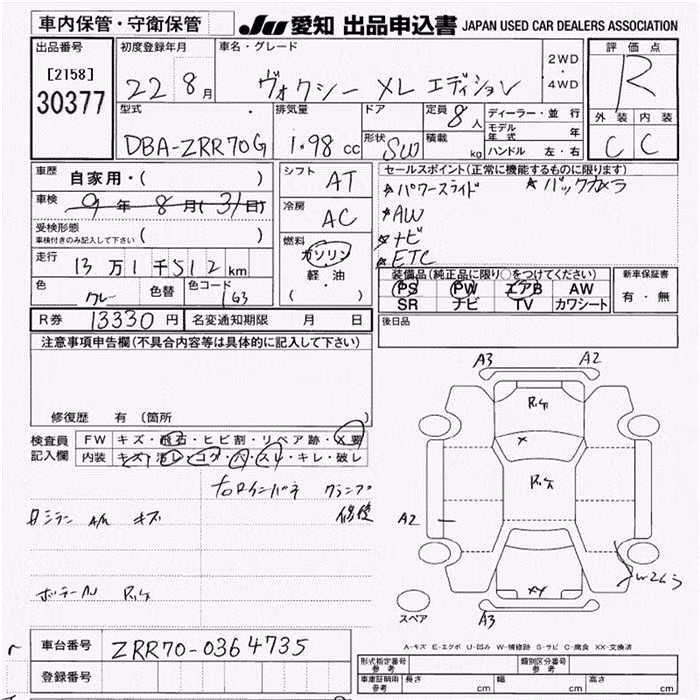 車内保管・守衛保管
JU 愛知 出品申込書 JAPAN USED CAR DEALERS ASSOCIATION
出品番号 初度登録年月 車名・グレード 2WD・4WD 評価点
[2158]
30377 22 8月 ヴォクシー XL エディション R
型式 排気量 ドア 定員 8人 ディーラー・並行 外装 内装
モデル年式 年
DBA-ZRR70G 1.98 cc 形状 SW 積載 kg ハンドル 左・右 C C
車歴 自家用・( ) シフト AT セールスポイント(正常に機能するものに限ります)
☆パワースライド ☆バックカメラ
車検 9年8月(31日) 冷房 AC ☆AW
受検形態
車検付きのみ記入して下さい ( ) ☆ナビ
燃料 ガソリン ☆ETC
走行 13万1千512km 軽油 装備品(純正品に限り○をつけてください) 新車保証書
色 グレー 色替 色コード 1G3 (・) PS PW エアB AW 有・無
SR ナビ TV カワシート
R券 13330円 名変通知期限 月 日 後日品
注意事項申告欄(不具合内容等は具体的に記入して下さい)
A3 A2
P.ケ
修復歴 有 (箇所
検査員 FW キズ・飛石・ヒビ割・リペア跡・X要
記入欄 内装 キズ・汚レ・コゲ・穴・スレ・キレ・破レ
右Rインパネ クランプ
修復
キズ
A2
ボデーN P.ケ
XX
W2
スペア A3
車台番号 ZRR70-0364735
A-キズ E-エクボ U-凹み W-補修跡 S-サビ C-腐食 XX-交換済
形式指定番号 参考 類別区分番号 参考
登録番号 車庫証明用 参考 長さ cm 幅 cm 高さ cm